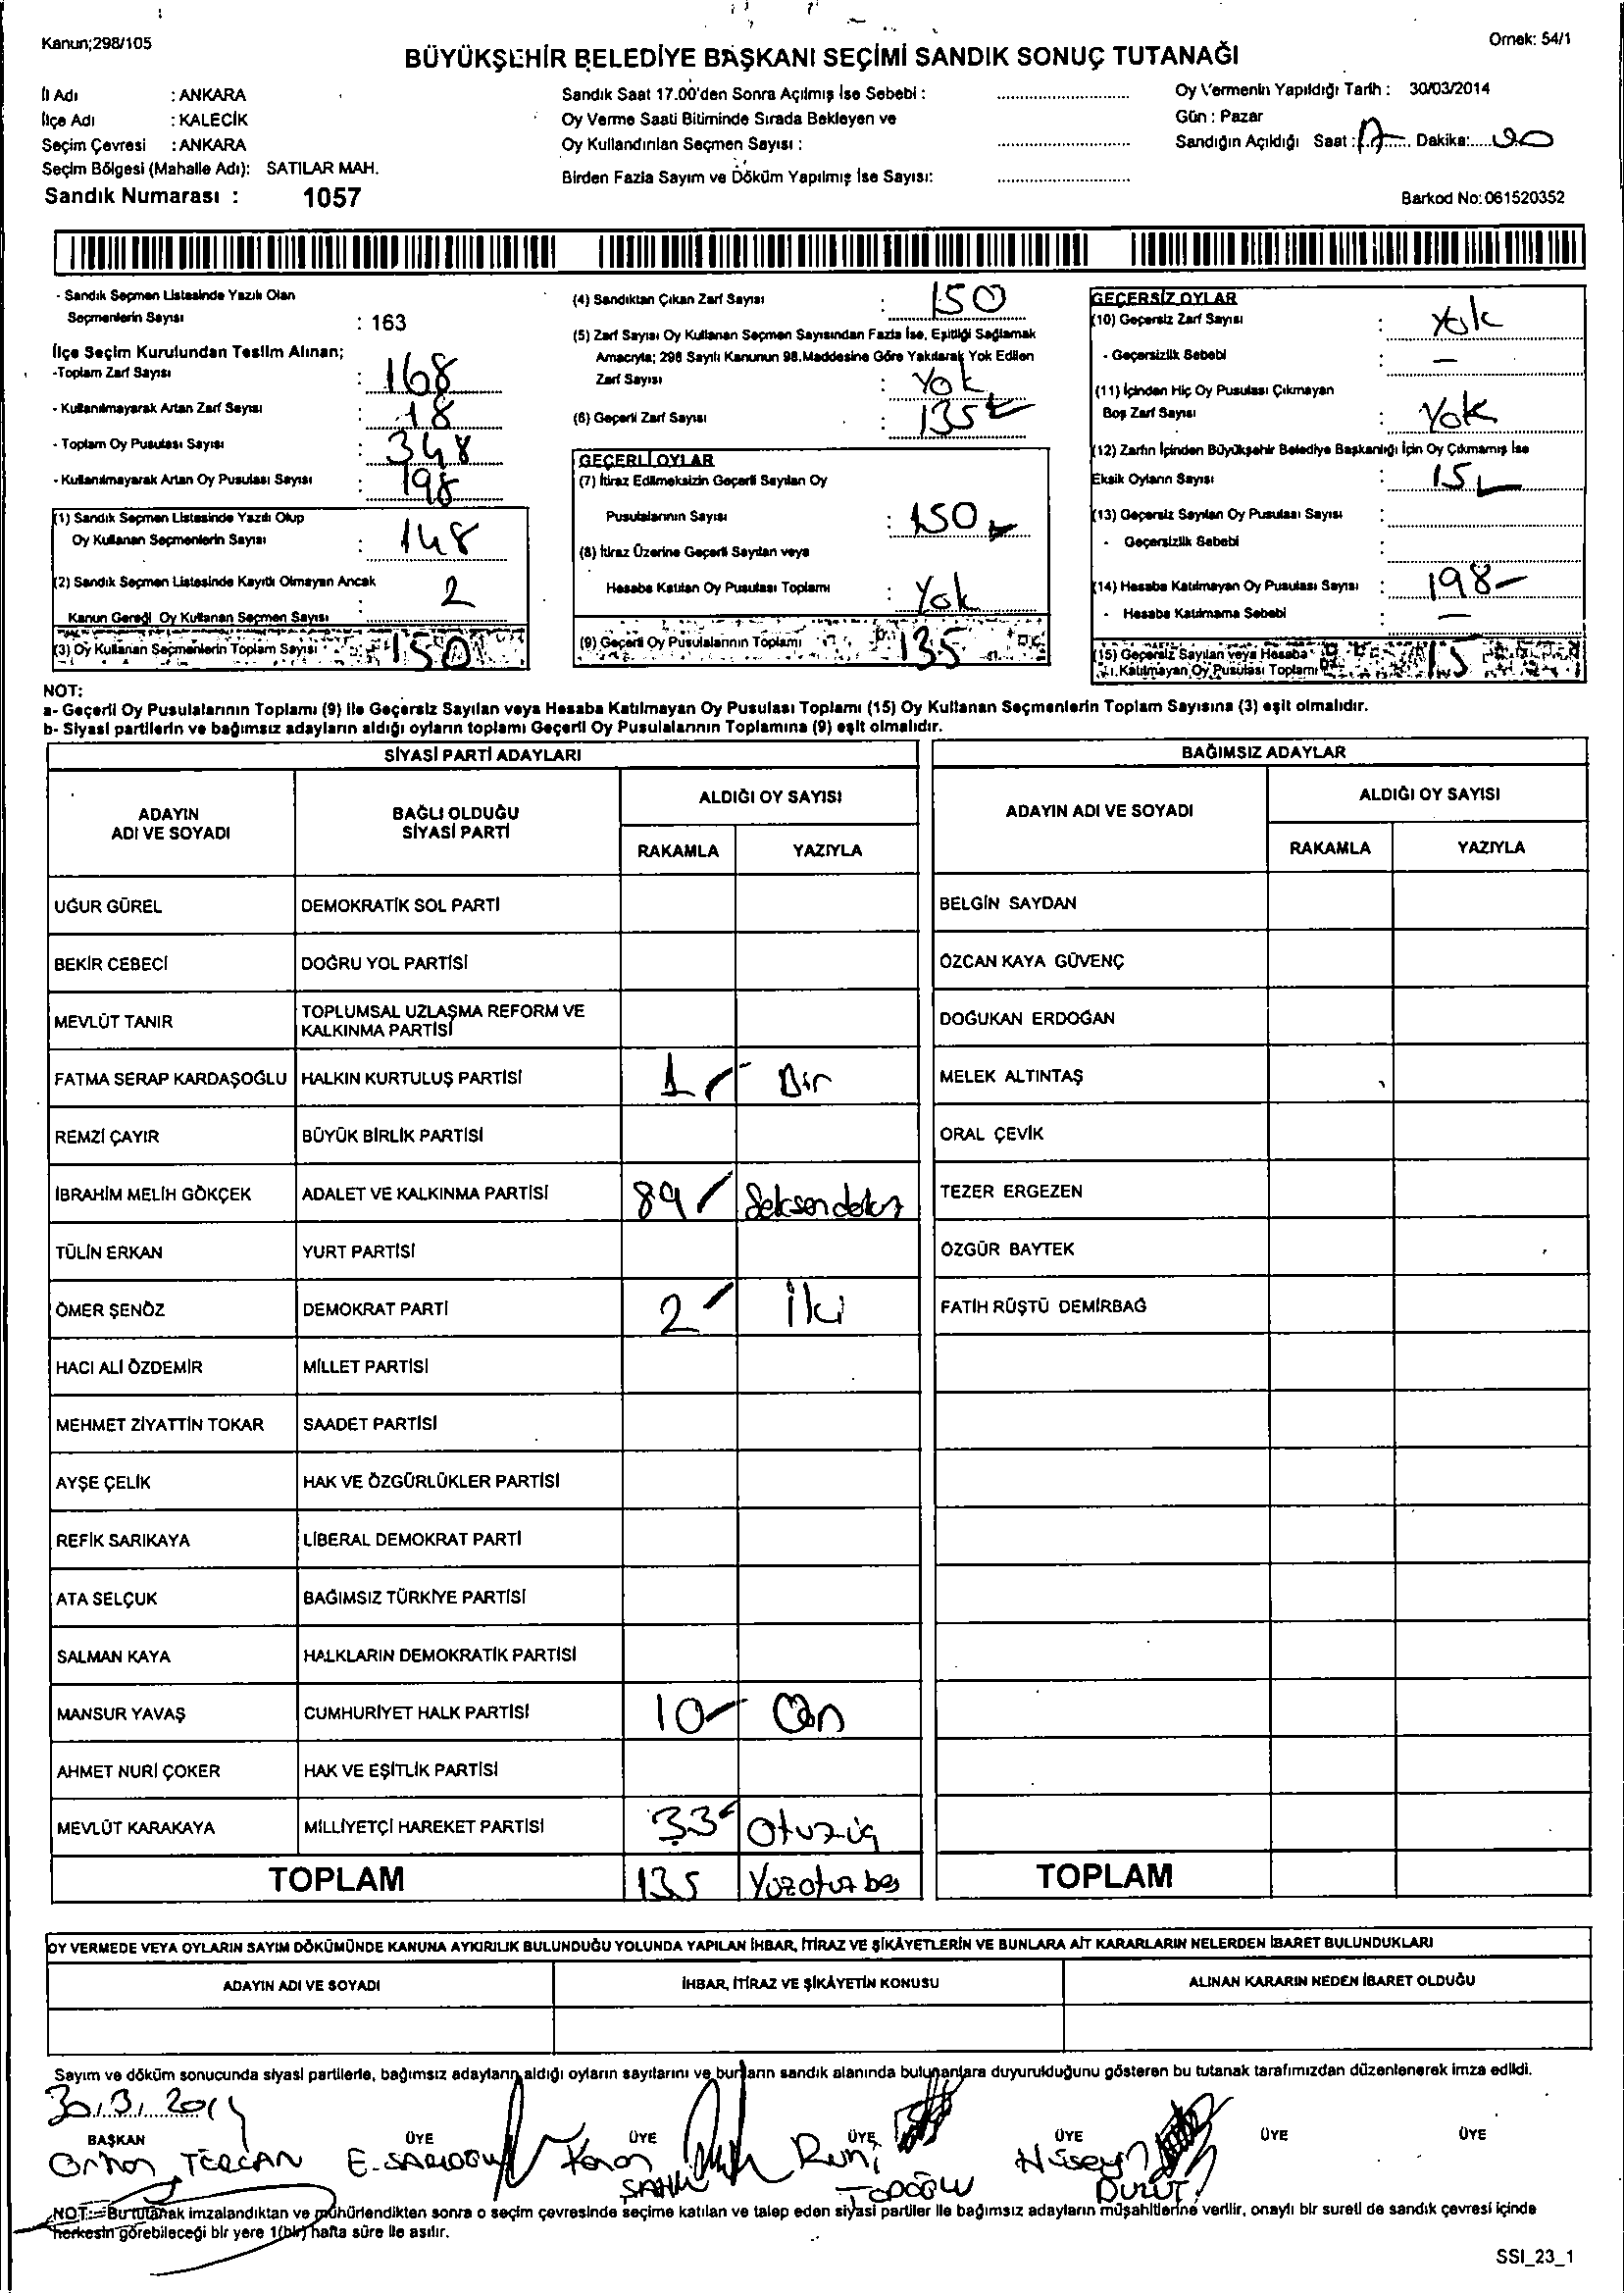 Kanun;298/105
Örnek: 54/1
BÜYÜKŞEHİR BELEDİYE BAŞKANI SEÇİMİ SANDIK SONUÇ TUTANAĞI
İl Adı : ANKARA
İlçe Adı : KALECİK
Seçim Çevresi : ANKARA
Seçim Bölgesi (Mahalle Adı): SATILAR MAH.
Sandık Numarası : 1057
Sandık Saat 17.00'den Sonra Açılmış İse Sebebi :
Oy Verme Saati Bitiminde Sırada Bekleyen ve
Oy Kullandırılan Seçmen Sayısı :
Birden Fazla Sayım ve Döküm Yapılmış İse Sayısı:
Oy Vermenin Yapıldığı Tarih : 30/03/2014
Gün : Pazar
Sandığın Açıldığı Saat : Dakika:
Barkod No: 061520352
- Sandık Seçmen Listesinde Yazılı Olan
Seçmenlerin Sayısı : 163
İlçe Seçim Kurulundan Teslim Alınan;
-Toplam Zarf Sayısı : 168
- Kullanılmayarak Artan Zarf Sayısı : 18
- Toplam Oy Pusulası Sayısı : 348
- Kullanılmayarak Artan Oy Pusulası Sayısı : 198
(1) Sandık Seçmen Listesinde Yazılı Olup
Oy Kullanan Seçmenlerin Sayısı : 148
(2) Sandık Seçmen Listesinde Kayıtlı Olmayan Ancak
Kanun Gereği Oy Kullanan Seçmen Sayısı : 2
(3) Oy Kullanan Seçmenlerin Toplam Sayısı : 150
(4) Sandıktan Çıkan Zarf Sayısı : 150
(5) Zarf Sayısı Oy Kullanan Seçmen Sayısından Fazla İse, Eşitliği Sağlamak
Amacıyla; 298 Sayılı Kanunun 98.Maddesine Göre Yakılarak Yok Edilen
Zarf Sayısı : Yok
(6) Geçerli Zarf Sayısı : 135
GEÇERLİ OYLAR
(7) İtiraz Edilmeksizin Geçerli Sayılan Oy
Pusulalarının Sayısı : 150
(8) İtiraz Üzerine Geçerli Sayılan veya
Hesaba Katılan Oy Pusulası Toplamı : Yok
(9) Geçerli Oy Pusulalarının Toplamı : 135
GEÇERSİZ OYLAR
(10) Geçersiz Zarf Sayısı : Yok
- Geçersizlik Sebebi : -
(11) İçinden Hiç Oy Pusulası Çıkmayan
Boş Zarf Sayısı : Yok
(12) Zarfın İçinden Büyükşehir Belediye Başkanlığı İçin Oy Çıkmamış İse
Eksik Oyların Sayısı : 15
(13) Geçersiz Sayılan Oy Pusulası Sayısı :
- Geçersizlik Sebebi :
(14) Hesaba Katılmayan Oy Pusulası Sayısı : 198-
- Hesaba Katılmama Sebebi : -
(15) Geçersiz Sayılan veya Hesaba
Katılmayan Oy Pusulası Toplamı 15
NOT:
a- Geçerli Oy Pusulalarının Toplamı (9) ile Geçersiz Sayılan veya Hesaba Katılmayan Oy Pusulası Toplamı (15) Oy Kullanan Seçmenlerin Toplam Sayısına (3) eşit olmalıdır.
b- Siyasi partilerin ve bağımsız adayların aldığı oyların toplamı Geçerli Oy Pusulalarının Toplamına (9) eşit olmalıdır.
SİYASİ PARTİ ADAYLARI
ADAYIN ADI VE SOYADI
BAĞLI OLDUĞU SİYASİ PARTİ
ALDIĞI OY SAYISI
RAKAMLA YAZIYLA
UĞUR GÜREL DEMOKRATİK SOL PARTİ
BEKİR CEBECİ DOĞRU YOL PARTİSİ
MEVLÜT TANIR TOPLUMSAL UZLAŞMA REFORM VE KALKINMA PARTİSİ
FATMA SERAP KARDAŞOĞLU HALKIN KURTULUŞ PARTİSİ 1 Bir
REMZİ ÇAYIR BÜYÜK BİRLİK PARTİSİ
İBRAHİM MELİH GÖKÇEK ADALET VE KALKINMA PARTİSİ 89 Seksendokuz
TÜLİN ERKAN YURT PARTİSİ
ÖMER ŞENÖZ DEMOKRAT PARTİ 2 İki
HACI ALİ ÖZDEMİR MİLLET PARTİSİ
MEHMET ZİYATTİN TOKAR SAADET PARTİSİ
AYŞE ÇELİK HAK VE ÖZGÜRLÜKLER PARTİSİ
REFİK SARIKAYA LİBERAL DEMOKRAT PARTİ
ATA SELÇUK BAĞIMSIZ TÜRKİYE PARTİSİ
SALMAN KAYA HALKLARIN DEMOKRATİK PARTİSİ
MANSUR YAVAŞ CUMHURİYET HALK PARTİSİ 10 On
AHMET NURİ ÇOKER HAK VE EŞİTLİK PARTİSİ
MEVLÜT KARAKAYA MİLLİYETÇİ HAREKET PARTİSİ 33 Otuzüç
TOPLAM 135 Yüzotuzbeş
BAĞIMSIZ ADAYLAR
ADAYIN ADI VE SOYADI
ALDIĞI OY SAYISI
RAKAMLA YAZIYLA
BELGİN SAYDAN
ÖZCAN KAYA GÜVENÇ
DOĞUKAN ERDOĞAN
MELEK ALTINTAŞ
ORAL ÇEVİK
TEZER ERGEZEN
ÖZGÜR BAYTEK
FATİH RÜŞTÜ DEMİRBAĞ
TOPLAM
OY VERMEDE VEYA OYLARIN SAYIM DÖKÜMÜNDE KANUNA AYKIRILIK BULUNDUĞU YOLUNDA YAPILAN İHBAR, İTİRAZ VE ŞİKÂYETLERİN VE BUNLARA AİT KARARLARIN NELERDEN İBARET BULUNDUKLARI
ADAYIN ADI VE SOYADI İHBAR, İTİRAZ VE ŞİKÂYETİN KONUSU ALINAN KARARIN NEDEN İBARET OLDUĞU
Sayım ve döküm sonucunda siyasi partilerle, bağımsız adayların aldığı oyların sayılarını ve bunların sandık alanında bulunanlara duyurulduğunu gösteren bu tutanak tarafımızdan düzenlenerek imza edildi.
30.3.2014
BAŞKAN ÜYE ÜYE ÜYE ÜYE ÜYE ÜYE
Orhan TERCAN Kenan ŞAHİN Hüseyin
NOT:=Bu tutanak imzalandıktan ve mühürlendikten sonra o seçim çevresinde seçime katılan ve talep eden siyasi partiler ile bağımsız adayların müşahitlerine verilir, onaylı bir sureti de sandık çevresi içinde
herkesin görebileceği bir yere 1(bir) hafta süre ile asılır.
SSI_23_1